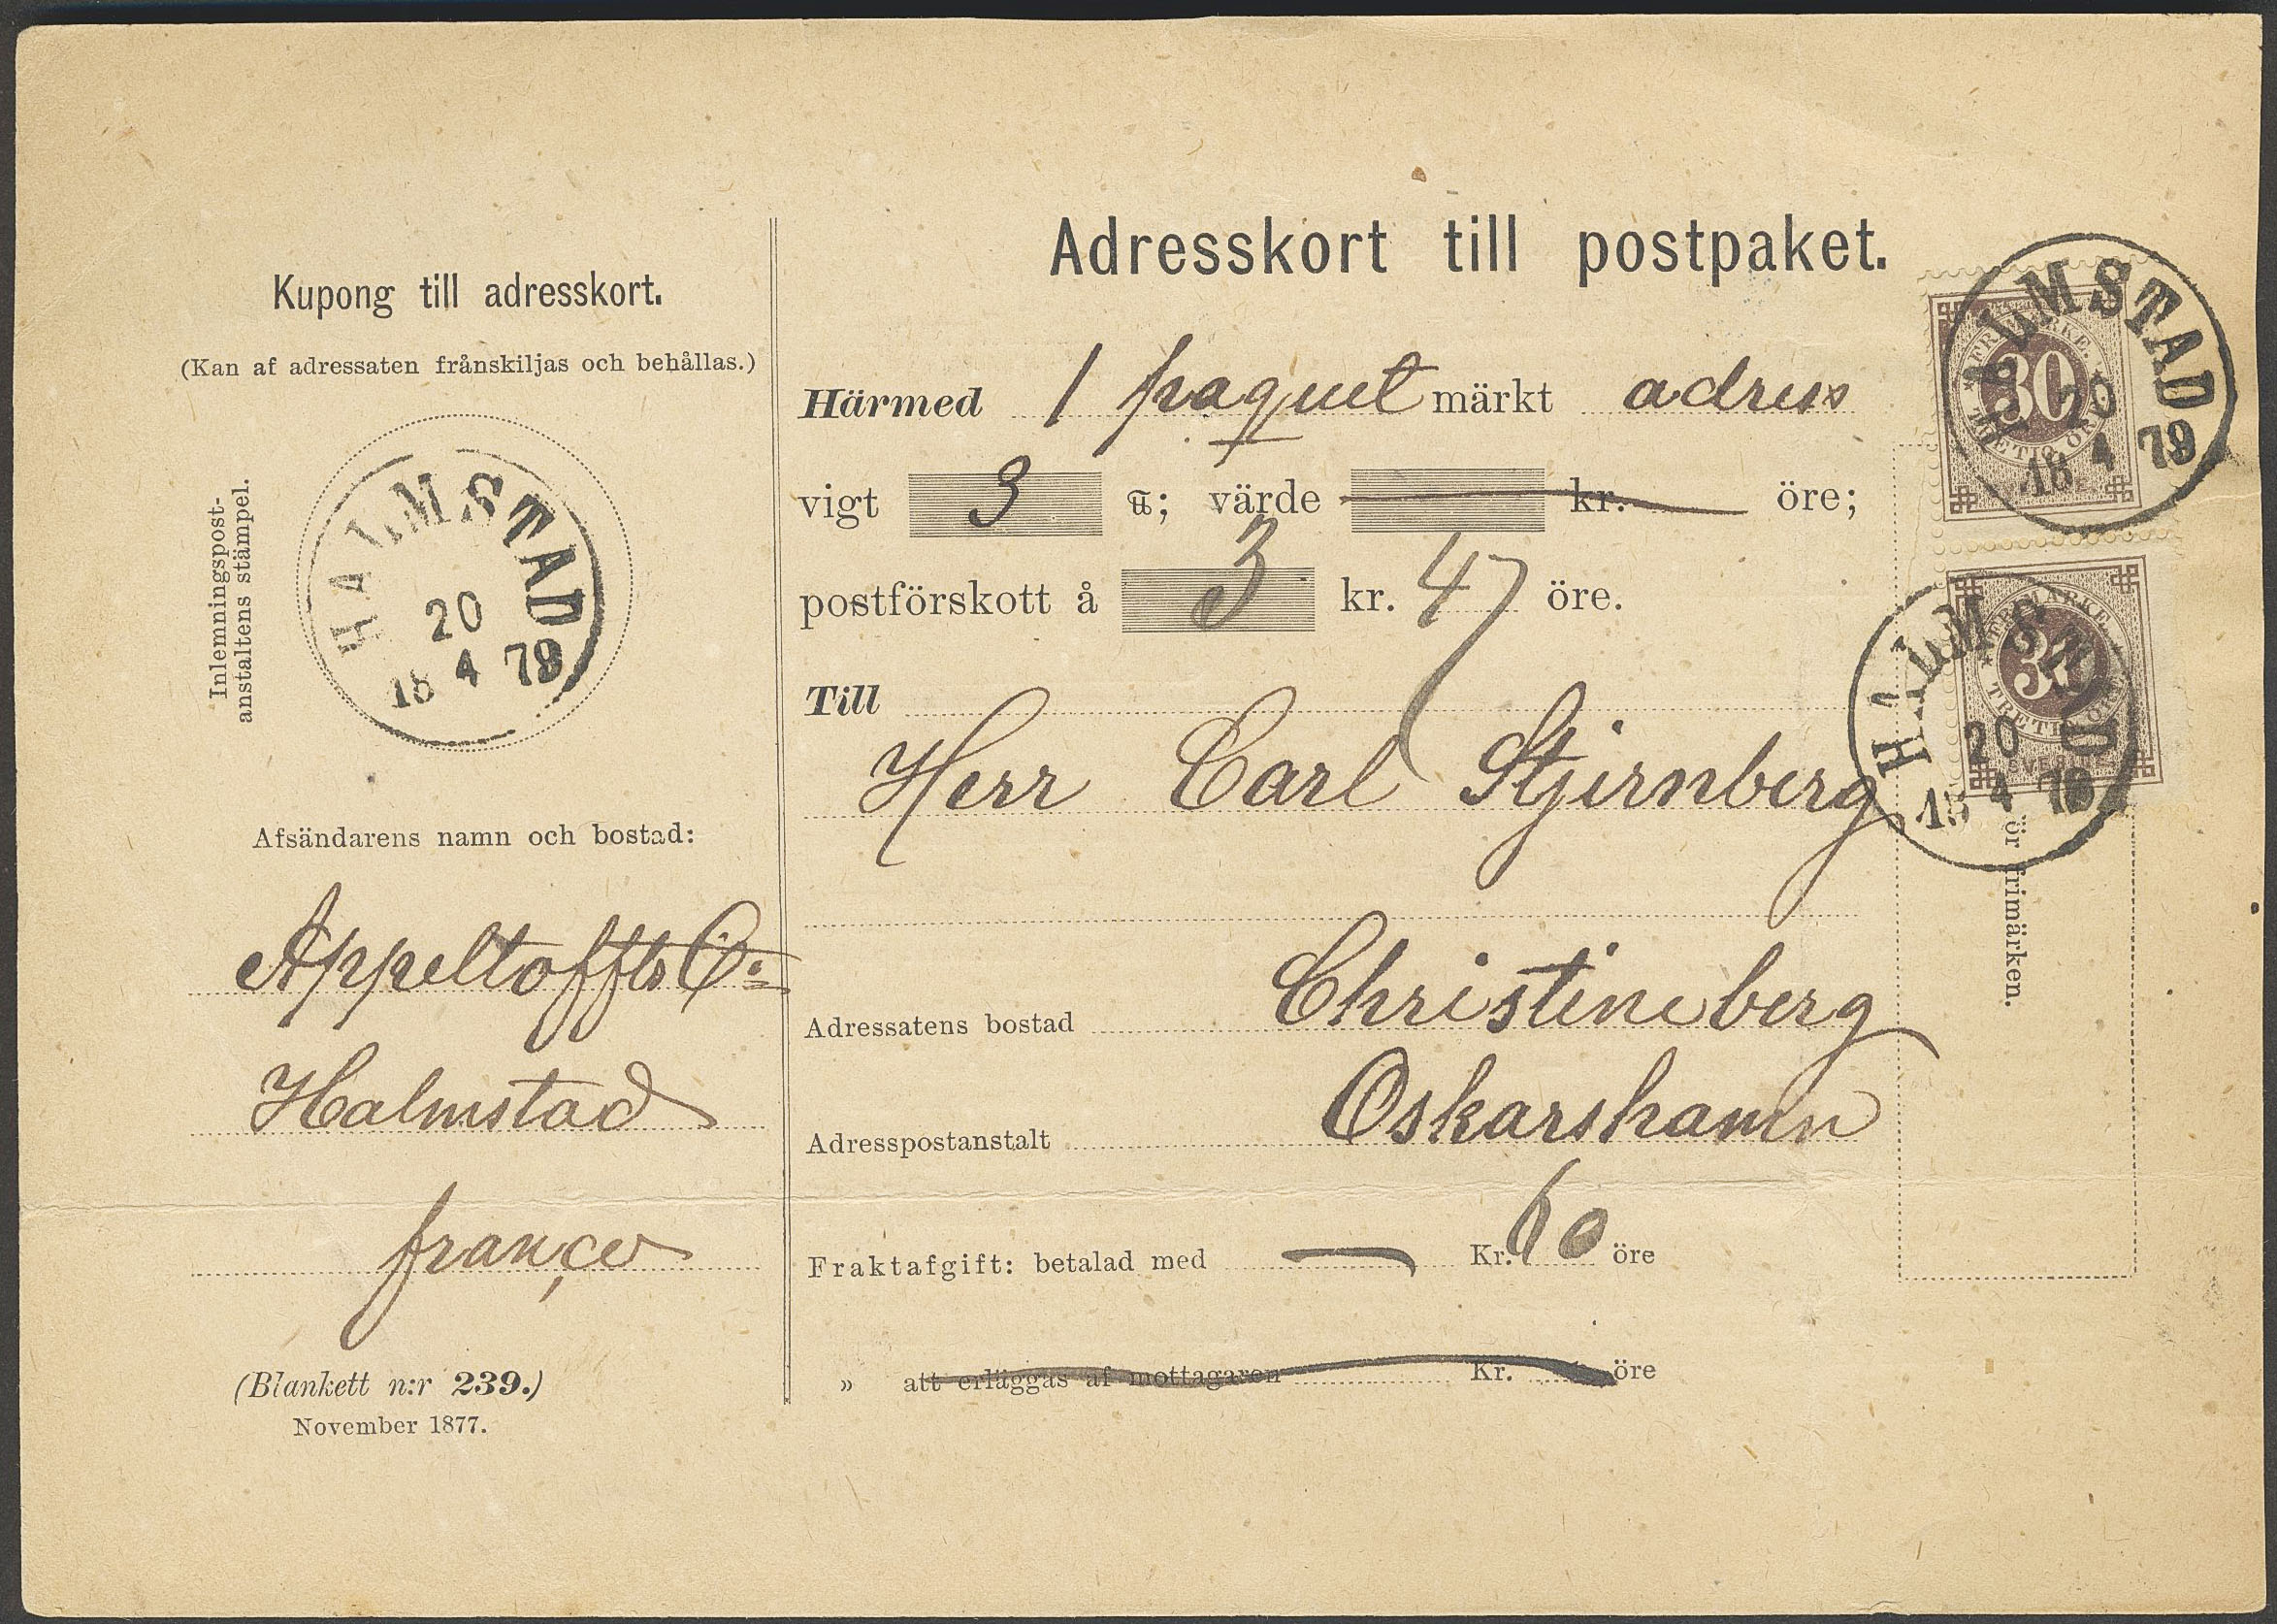 Kupong till adresskort.
(Kan af adressaten frånskiljas och behållas.)
Inlemningspost-
anstaltens stämpel.
HALMSTAD
20
18 4 79
Afsändarens namn och bostad:
Appeltoffts Co
Halmstad
franco
(Blankett n:r 239.)
November 1877.
Adresskort till postpaket.
Härmed 1 paquet märkt adress
vigt 3 ℔; värde kr. öre;
postförskott å 3 kr. 47 öre.
Till
Herr Carl Stjernberg
Adressatens bostad Christineberg
Adresspostanstalt Oskarshamn
Fraktafgift: betalad med — Kr. 60 öre
» att erläggas af mottagaren Kr. öre
FRIMÄRKE.
30
TRETIO ÖRE
HALMSTAD
20
18 4 79
FRIMÄRKE.
30
TRETIO ÖRE
SVERIGE
HALMSTAD
20
18 4 79
för frimärken.